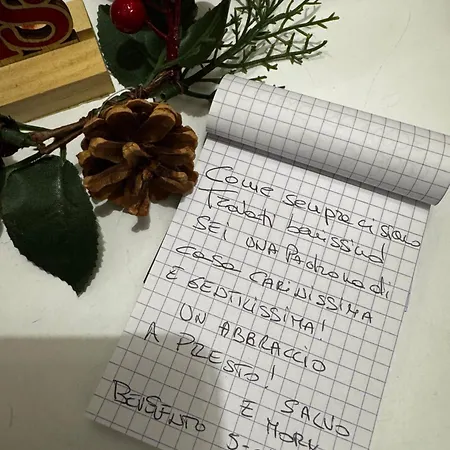 S
Come sempre ci siamo
trovati benissimo
SEI UNA PADRONA di
casa CARINISSIMA
E GENTILISSIMA!
UN ABBRACCIO
A PRESTO!
SALVO
E
BENVENTO